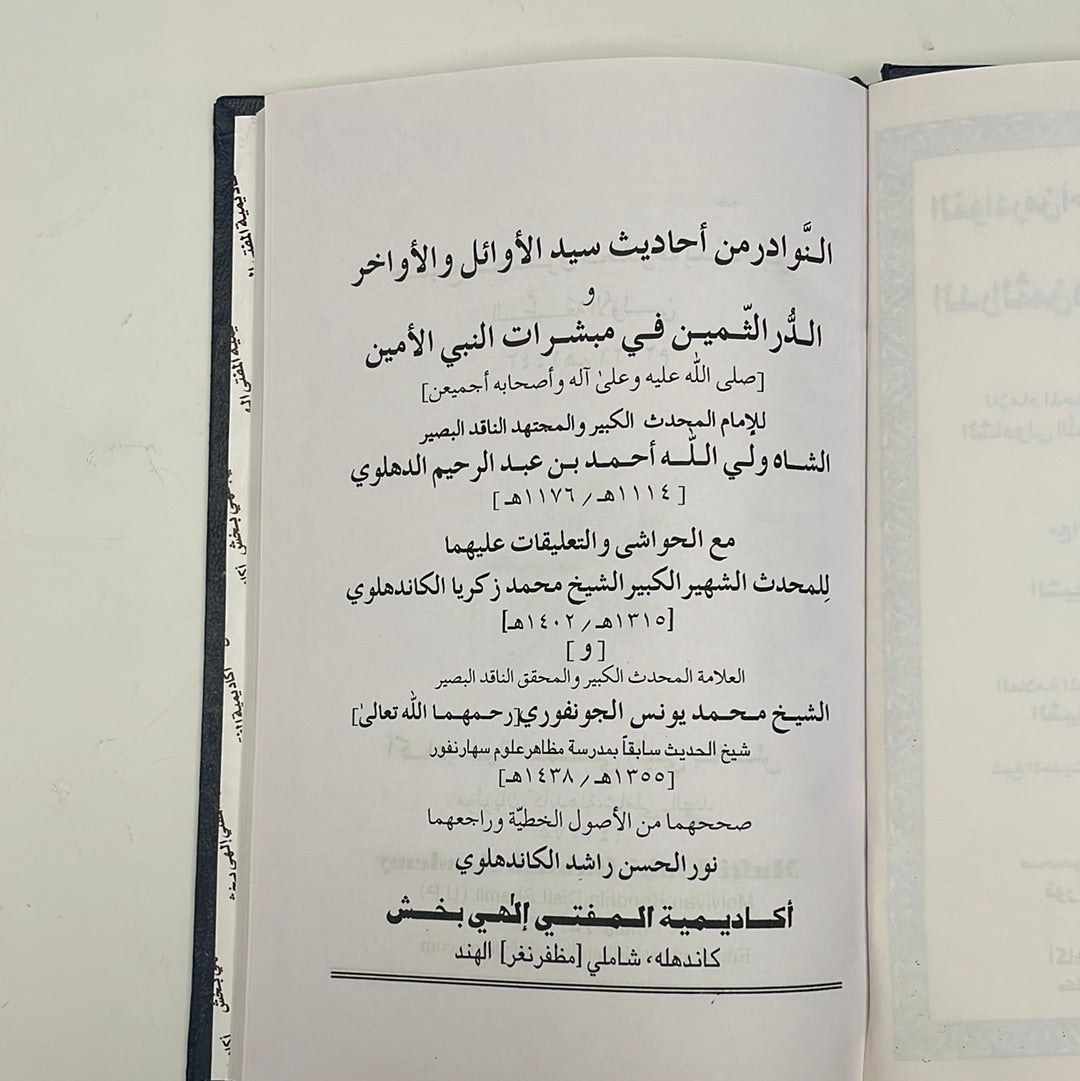 النَّوادر من أحاديث سيد الأوائل والأواخر
و
الدُّر الثّمين في مبشرات النبي الأمين
[صلى الله عليه وعلىٰ آله وأصحابه أجميعن]
للإمام المحدث الكبير والمجتهد الناقد البصير
الشاه ولي اللّٰه أحمد بن عبد الرحيم الدهلوي
[ ١١١٤هـ / ١١٧٦هـ ]
مع الحواشى والتعليقات عليهما
لِلمحدث الشهير الكبير الشيخ محمد زكريا الكاندهلوي
[١٣١٥هـ / ١٤٠٢هـ]
[ و ]
العلامة المحدث الكبير والمحقق الناقد البصير
الشيخ محمد يونس الجونفوري[رحمهما الله تعالىٰ]
شيخ الحديث سابقاً بمدرسة مظاهر علوم سهارنفور
[١٣٥٥هـ / ١٤٣٨هـ]
صححهما من الأصول الخطيّة وراجعهما
نور الحسن راشد الكاندهلوي
أكاديمية المفتي إلٰهي بخش
كاندهله، شاملي [مظفر نغر] الهند